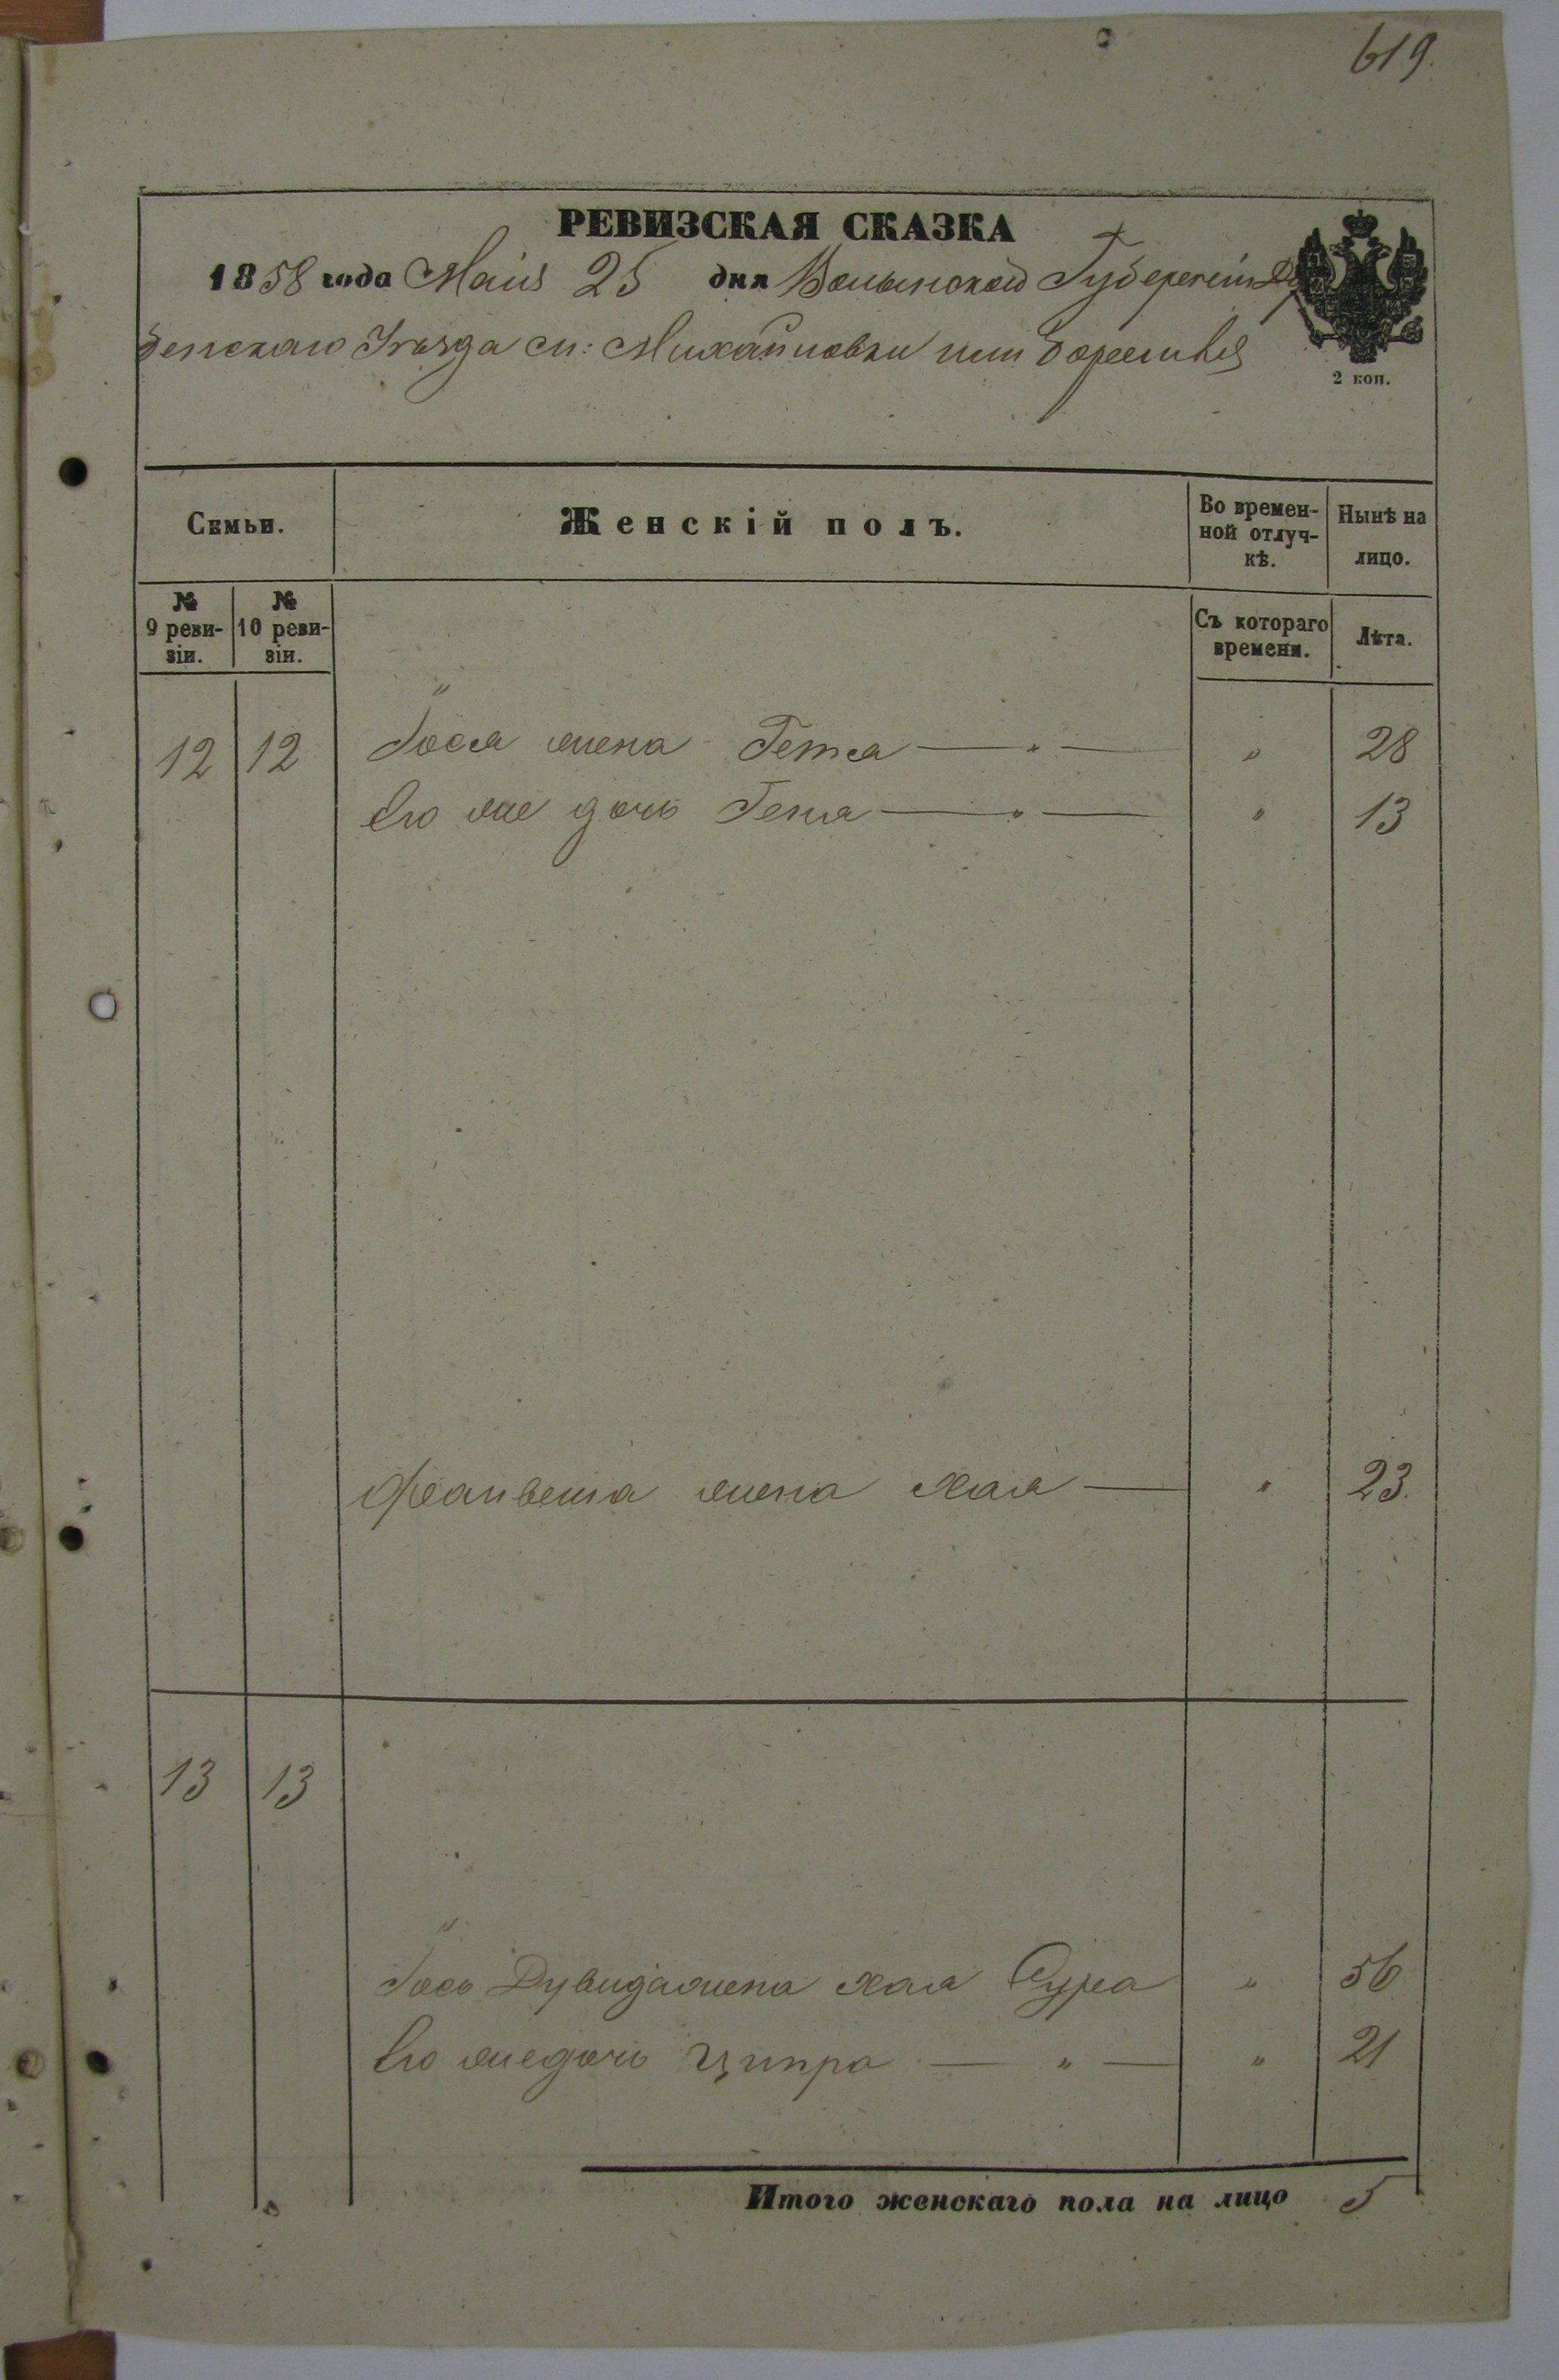 619.
РЕВИЗСКАЯ СКАЗКА
1858 года Маія 25 дня Волынской Губерніи Ду
бенскаго Уѣзда м: Михайловки или Берестья
2 коп.
Семьи.
Женскій полъ.
Во времен-
ной отлуч-
кѣ.
Нынѣ на
лицо.
№
9 реви-
зіи.
№
10 реви-
зіи.
Съ котораго
времени.
Лѣта.
12 12 Іося жена Гитля — " — " 28
Его же дочь Геня — " — " 13
Файвеша жена Хая — " 23.
13 13
Іось Дувида жена Хая Сура " 56
Его же дочь Ципра — " — " 21
Итого женскаго пола на лицо 5